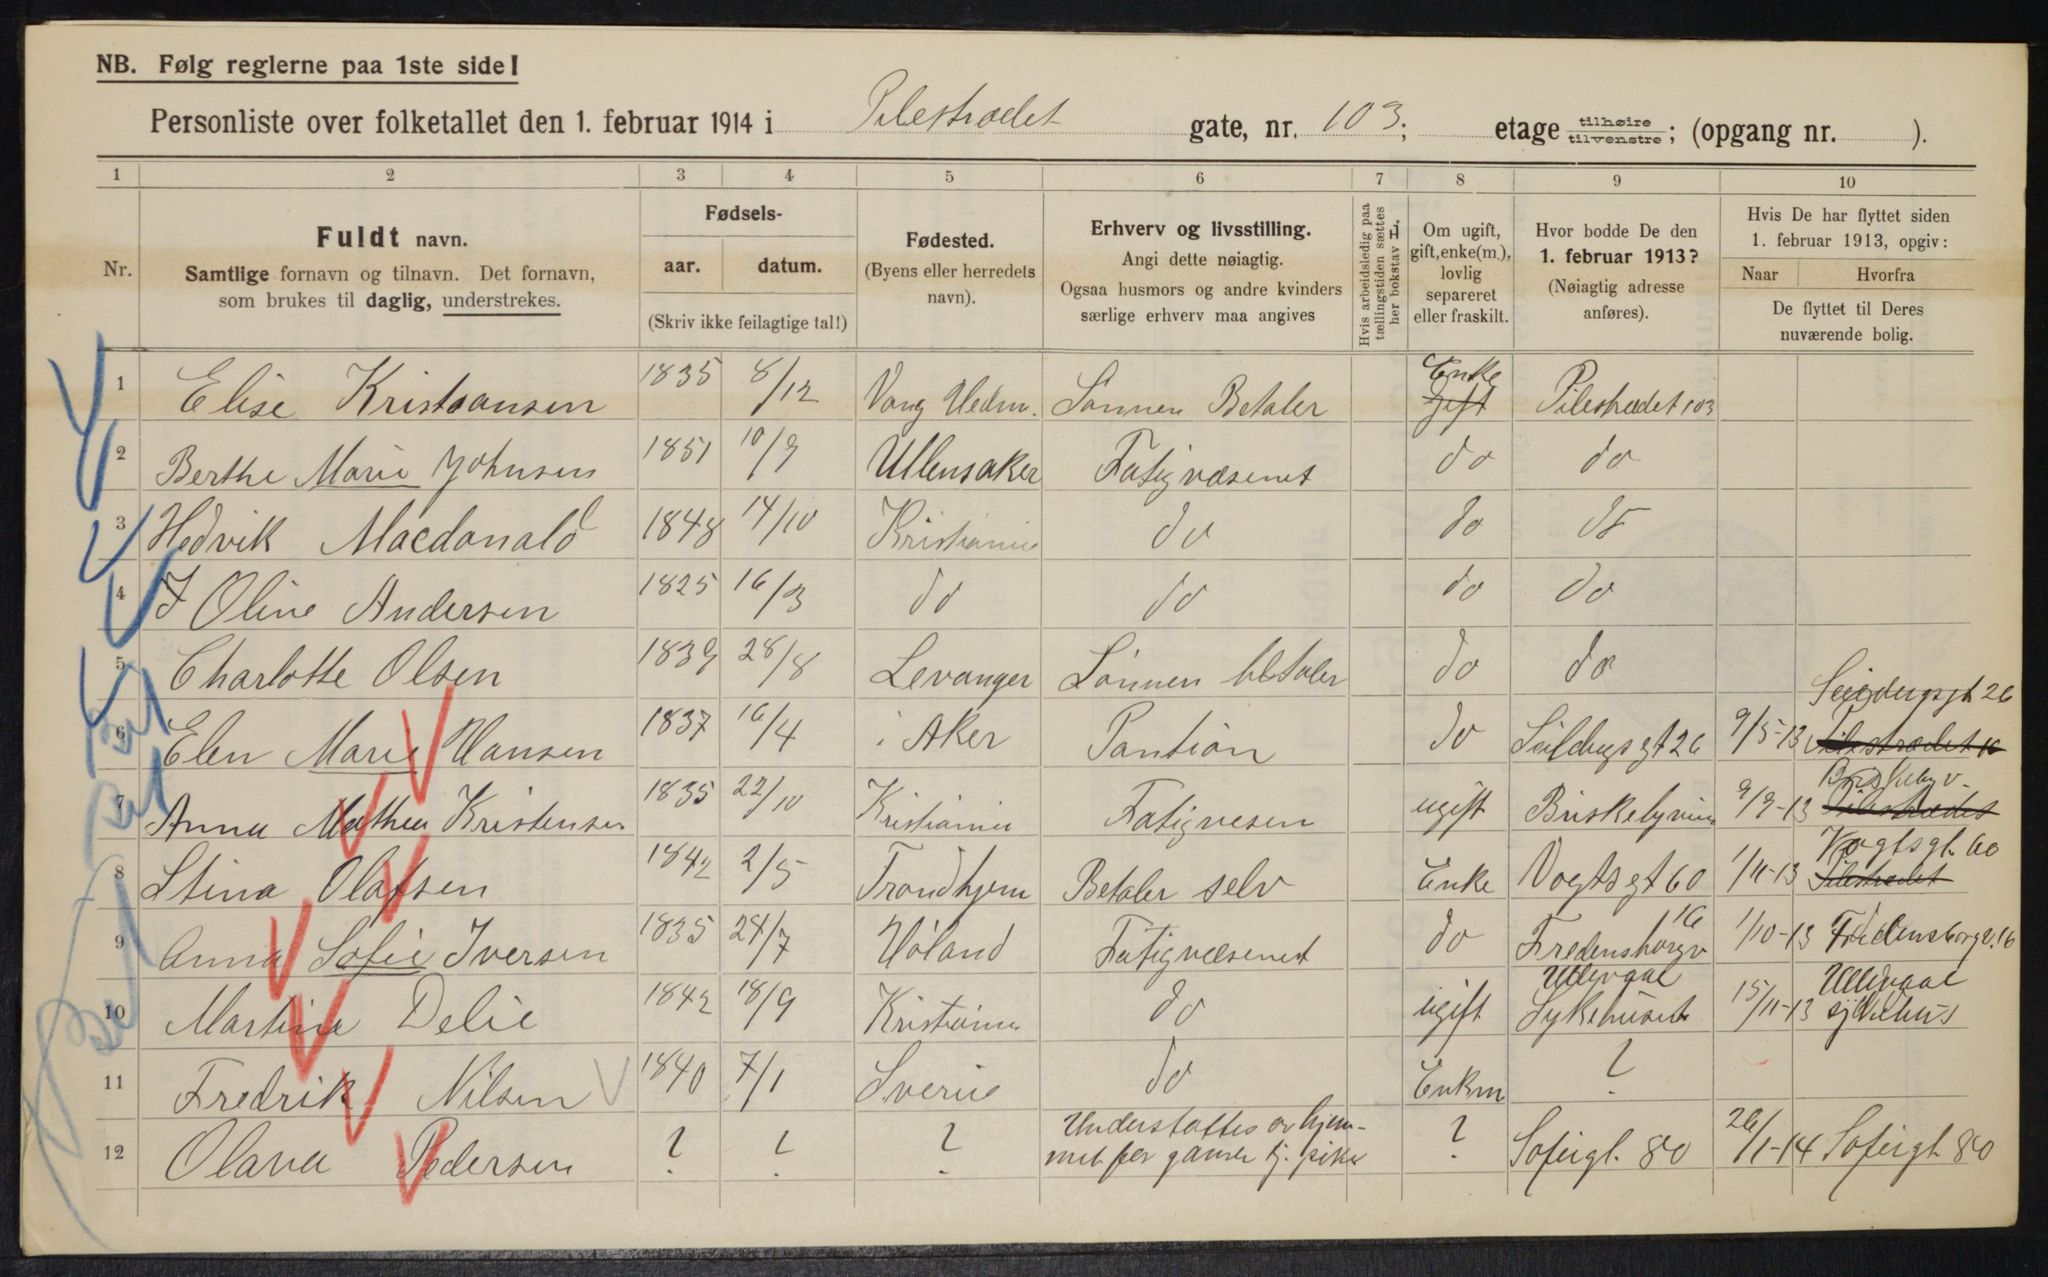 NB. Følg reglerne paa 1ste side!
Personliste over folketallet den 1. februar 1914 i Pilestrædet gate, nr. 103; etage tilhøire tilvenstre; (opgang nr. ).
1 2 3 4 5 6 7 8 9 10
Nr.
Fuldt navn.
Samtlige fornavn og tilnavn. Det fornavn,
som brukes til daglig, understrekes.
Fødsels-
aar. datum.
(Skriv ikke feilagtige tal!)
Fødested.
(Byens eller herredets
navn).
Erhverv og livsstilling.
Angi dette nøiagtig.
Ogsaa husmors og andre kvinders
særlige erhverv maa angives
Hvis arbeidsledig paa
tællingstiden sættes
her bokstav L.
Om ugift,
gift, enke(m.),
lovlig
separeret
eller fraskilt.
Hvor bodde De den
1. februar 1913?
(Nøiagtig adresse
anføres).
Hvis De har flyttet siden
1. februar 1913, opgiv:
Naar Hvorfra
De flyttet til Deres
nuværende bolig.
1 Elise Kristiansen 1835 8/12 Vang Hedm. Sønnen Betaler Enke gift Pilestrædet 103
2 Berthe Marie Johnsen 1851 10/9 Ullensaker Fatigvæsenet do do
3 Hedvik Macdonald 1848 14/10 Kristiania do do do
4 J Oline Andersen 1825 16/3 do do do do
5 Charlotte Olsen 1839 28/8 Levanger Sønnen betaler do do
6 Elen Marie Hansen 1837 16/4 i Aker Pantion do Seildugsgt 26 9/5-13 Seildugsgt 26 Pilestrædet
7 Anna Mathea Kristensen 1835 22/10 Kristiania Fatigvesen ugift Briskebyveien 9/9-13 Briskebyv. Pilestrædet
8 Stina Olafsen 1842 2/5 Trondhjem Betaler selv Enke Vogtsgt 60 1/11-13 Vogtsgt. 60 Pilestrædet
9 Anna Sofie Iversen 1835 24/7 Høland Fatigvæsenet do Fredensborgv 16 1/10-13 Fredensborgv. 16
10 Martine Delie 1842 18/9 Kristiania do ugift Ullevaal Sykehuset 15/11-13 Ullevaal sykehus
11 Fredrik Nilsen 1840 7/1 Sverie do Enkm ?
12 Olava Pedersen ? ? ? Understøttes av hjem-
met for gamle tj. piker ? Sofiegt. 80 26/1-14 Sofiegt. 80